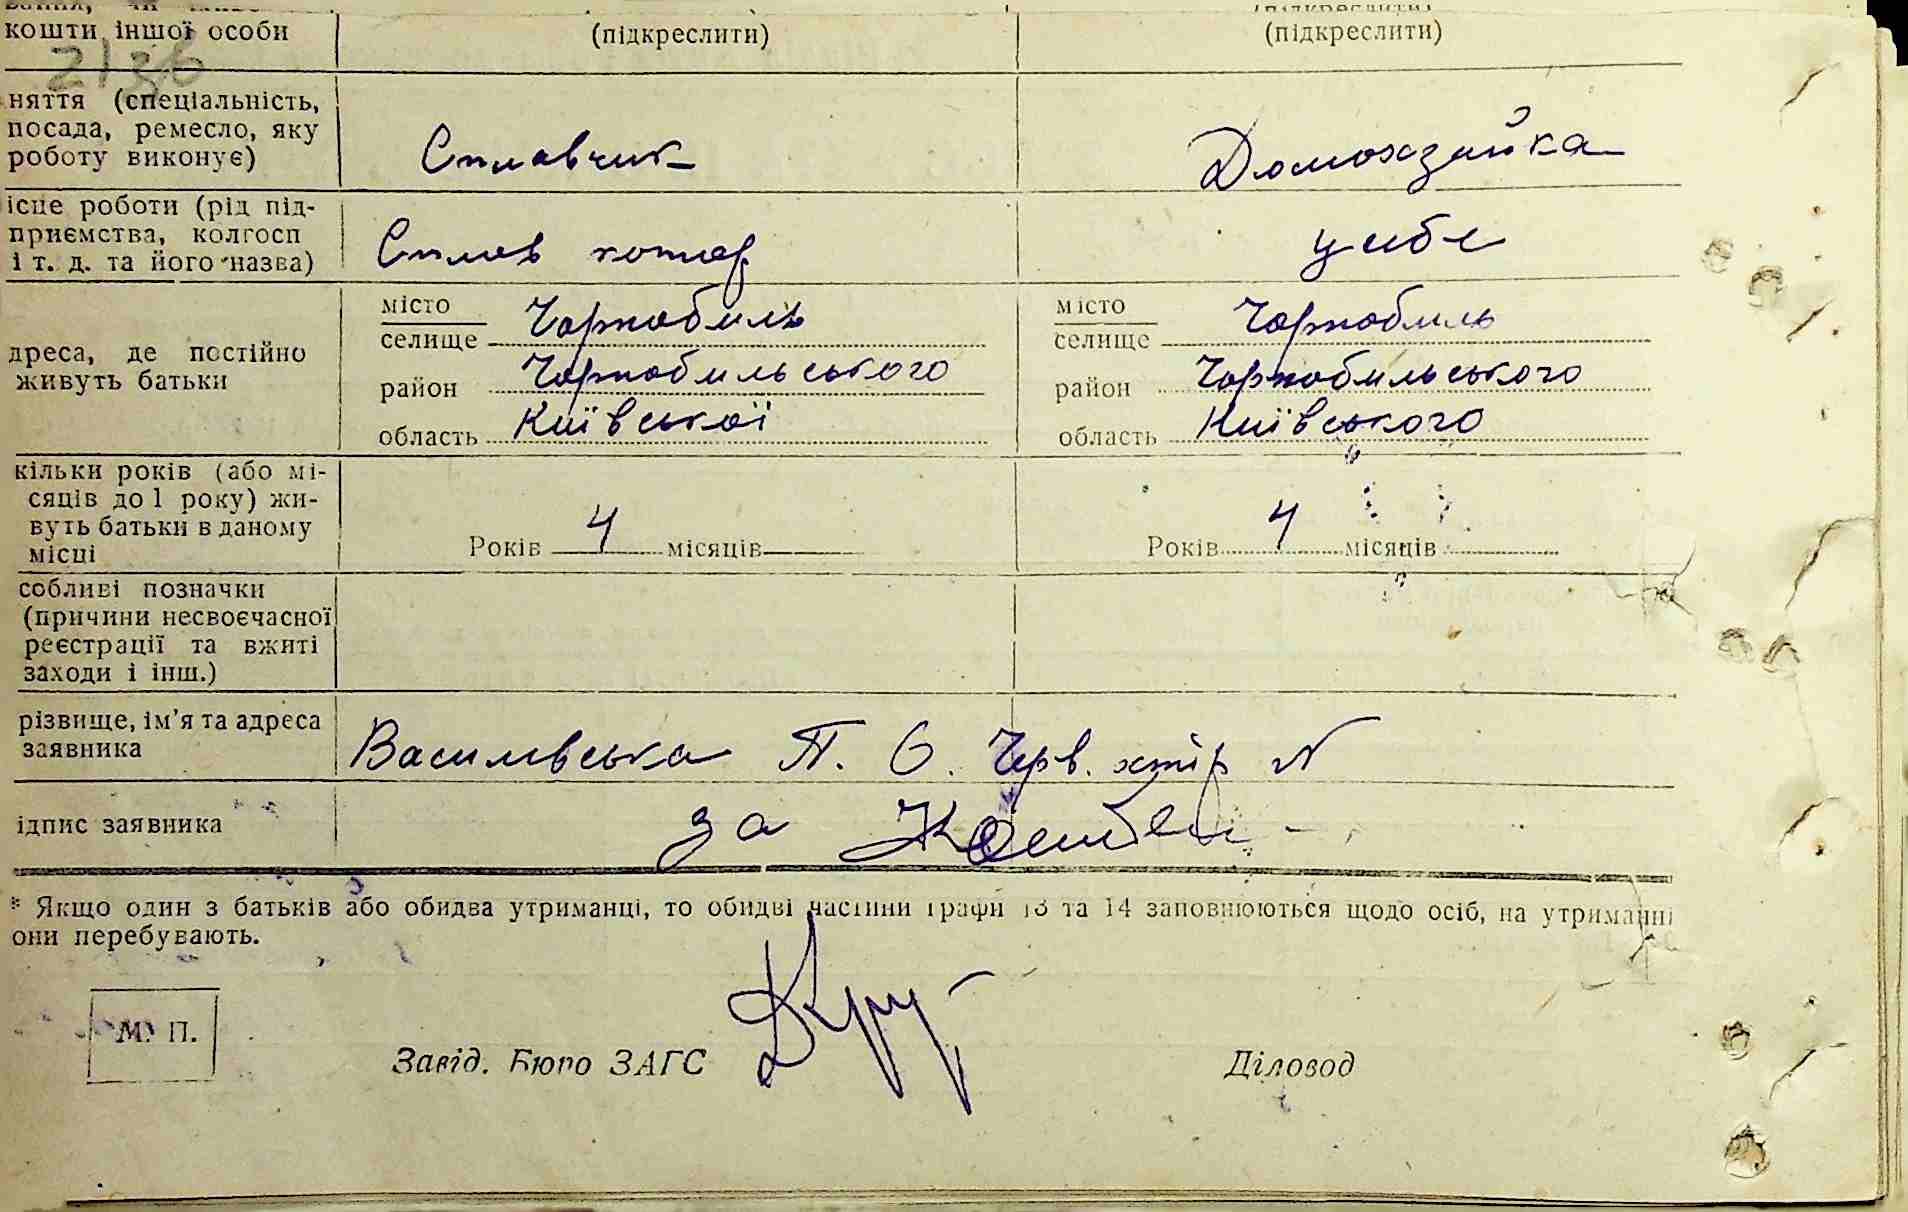 кошти іншої особи (підкреслити) (підкреслити)
2/36
няття (спеціальність,
посада, ремесло, яку
роботу виконує) Сплавчик Домохазяйка
ісце роботи (рід під-
приємства, колгосп
і т. д. та його назва) Сплав
місто Чорнобиль місто Чорнобиль
селище селище
дреса, де постійно
живуть батьки район Чорнобильського район Чорнобильського
область Київської область Київського
кільки років (або мі-
сяців до 1 року) жи-
вуть батьки в даному
місці Років 4 місяців Років 4 місяців
собливі позначки
(причини несвоєчасної
реєстрації та вжиті
заходи і інш.)
різвище, ім'я та адреса
заявника Василевська П. О. Черв. хутір N
ідпис заявника за
* Якщо один з батьків або обидва утриманці, то обидві частини графи 13 та 14 заповнюються щодо осіб, на утриманні
они перебувають.
М. П.
Завід. Бюро ЗАГС Діловод